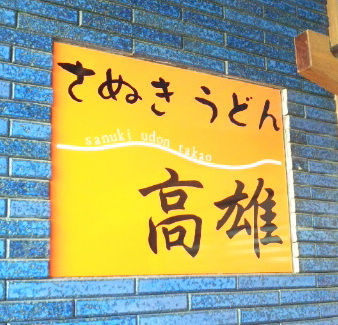 さぬきうどん
sanuki udon takao
高雄